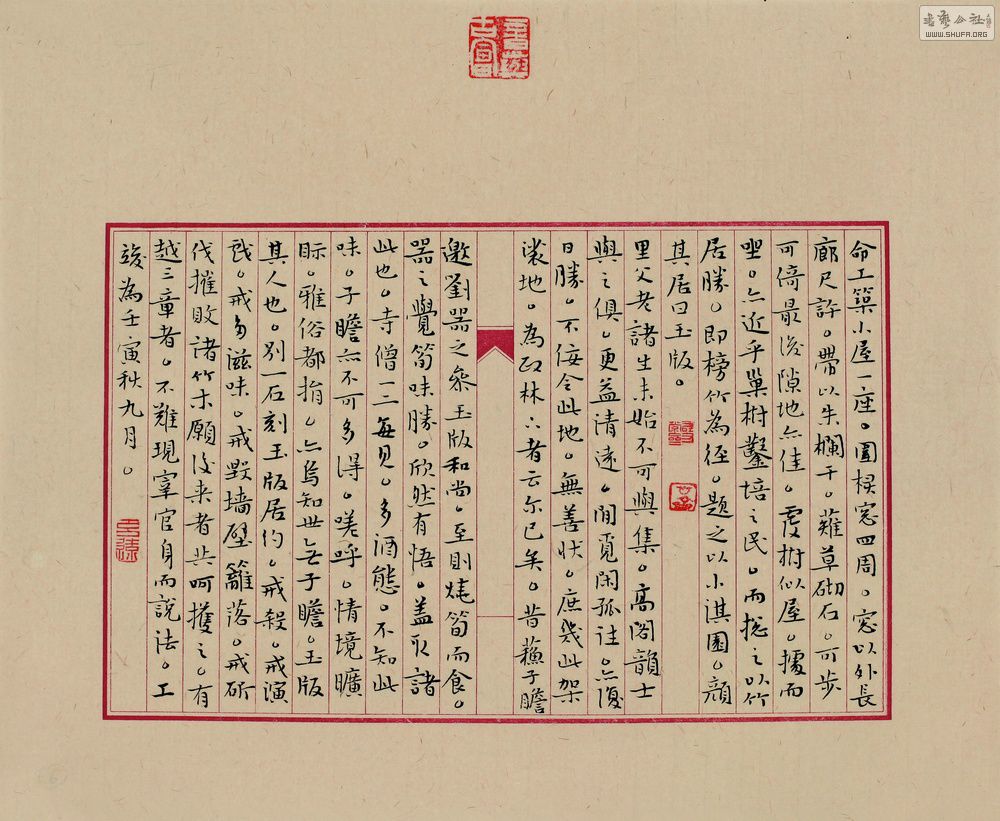 命工築小屋一座。圓棂窓四周。窓以外長
廊尺許。帶以朱欄干。薙草砌石。可步
可倚最後隙地亦佳。覆樹似屋。據而
坐。亦近乎巢樹鑿培之民。而揔之以竹
居勝。即榜竹為徑。題之以小淇園。顔
其居曰玉版。
里父老諸生未始不可與集。高閣韻士
與之俱。更益清遠。閒覓閑孤往。亦復
日勝。不佞令此地。無善狀。庶幾此架
裟地。為政林下者云尔已矣。昔蘇子瞻
邀劉器之參玉版和尚。至則燒筍而食。
器之覺筍味勝。欣然有悟。盖取諸
此也。寺僧一二每見。多酒態。不知此
味。子瞻亦不可多得。嗟呼。情境曠
眎。雅俗都捐。亦烏知世無子瞻。玉版
其人也。別一石刻玉版居約。戒殺。戒演
戲。戒多滋味。戒毀墙壁籬落。戒斫
伐摧敗諸竹木願後来者共呵擭之。有
越三章者。不難現宰官身而說法。工
竣為壬寅秋九月。
書藝公社
WWW.SHUFA.ORG